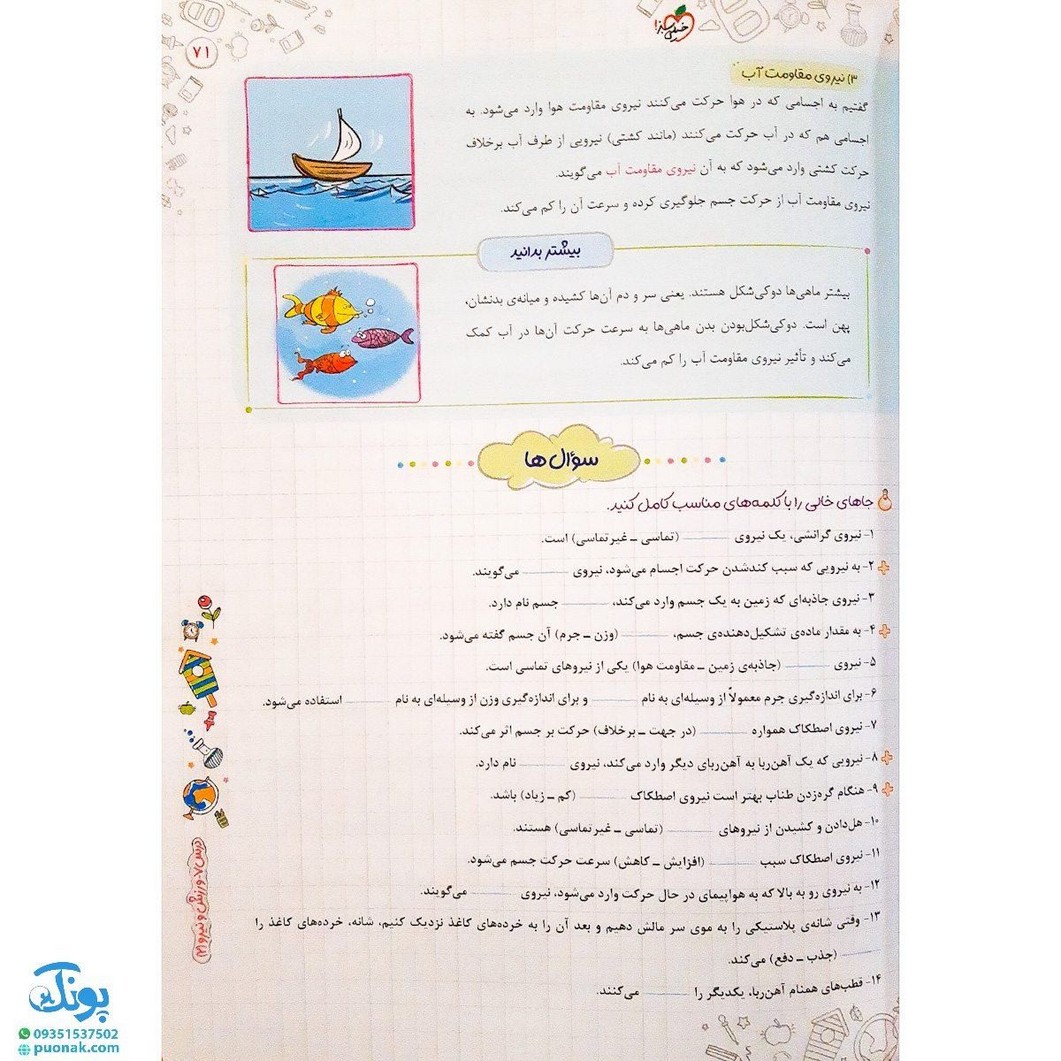 خیلی سبز
۷۱
۳) نیروی مقاومت آب
گفتیم به اجسامی که در هوا حرکت می‌کنند نیروی مقاومت هوا وارد می‌شود. به
اجسامی هم که در آب حرکت می‌کنند (مانند کشتی) نیرویی از طرف آب برخلاف
حرکت کشتی وارد می‌شود که به آن نیروی مقاومت آب می‌گویند.
نیروی مقاومت آب از حرکت جسم جلوگیری کرده و سرعت آن را کم می‌کند.
بیشتر بدانید
بیشتر ماهی‌ها دوکی‌شکل هستند. یعنی سر و دم آن‌ها کشیده و میانه‌ی بدنشان،
پهن است. دوکی‌شکل‌بودن بدن ماهی‌ها به سرعت حرکت آن‌ها در آب کمک
می‌کند و تأثیر نیروی مقاومت آب را کم می‌کند.
سؤال ها
جاهای خالی را با کلمه‌های مناسب کامل کنید.
۱- نیروی گرانشی، یک نیروی ــــــــ (تماسی ـ غیرتماسی) است.
۲- به نیرویی که سبب کندشدن حرکت اجسام می‌شود، نیروی ــــــــ می‌گویند.
۳- نیروی جاذبه‌ای که زمین به یک جسم وارد می‌کند، ــــــــ جسم نام دارد.
۴- به مقدار ماده‌ی تشکیل‌دهنده‌ی جسم، ــــــــ (وزن ـ جرم) آن جسم گفته می‌شود.
۵- نیروی ــــــــ (جاذبه‌ی زمین ـ مقاومت هوا) یکی از نیروهای تماسی است.
۶- برای اندازه‌گیری جرم معمولاً از وسیله‌ای به نام ــــــــ و برای اندازه‌گیری وزن از وسیله‌ای به نام ــــــــ استفاده می‌شود.
۷- نیروی اصطکاک همواره ــــــــ (در جهت ـ برخلاف) حرکت بر جسم اثر می‌کند.
۸- نیرویی که یک آهن‌ربا به آهن‌ربای دیگر وارد می‌کند، نیروی ــــــــ نام دارد.
۹- هنگام گره‌زدن طناب بهتر است نیروی اصطکاک ــــــــ (کم ـ زیاد) باشد.
۱۰- هل‌دادن و کشیدن از نیروهای ــــــــ (تماسی ـ غیرتماسی) هستند.
۱۱- نیروی اصطکاک سبب ــــــــ (افزایش ـ کاهش) سرعت حرکت جسم می‌شود.
۱۲- به نیروی رو به بالا که به هواپیمای در حال حرکت وارد می‌شود، نیروی ــــــــ می‌گویند.
۱۳- وقتی شانه‌ی پلاستیکی را به موی سر مالش دهیم و بعد آن را به خرده‌های کاغذ نزدیک کنیم، شانه، خرده‌های کاغذ را
ــــــــ (جذب ـ دفع) می‌کند.
۱۴- قطب‌های همنام آهن‌ربا، یکدیگر را ــــــــ می‌کنند.
درس ۷- ورزش و نیرو (۲)
پونک
09351537502
puonak.com